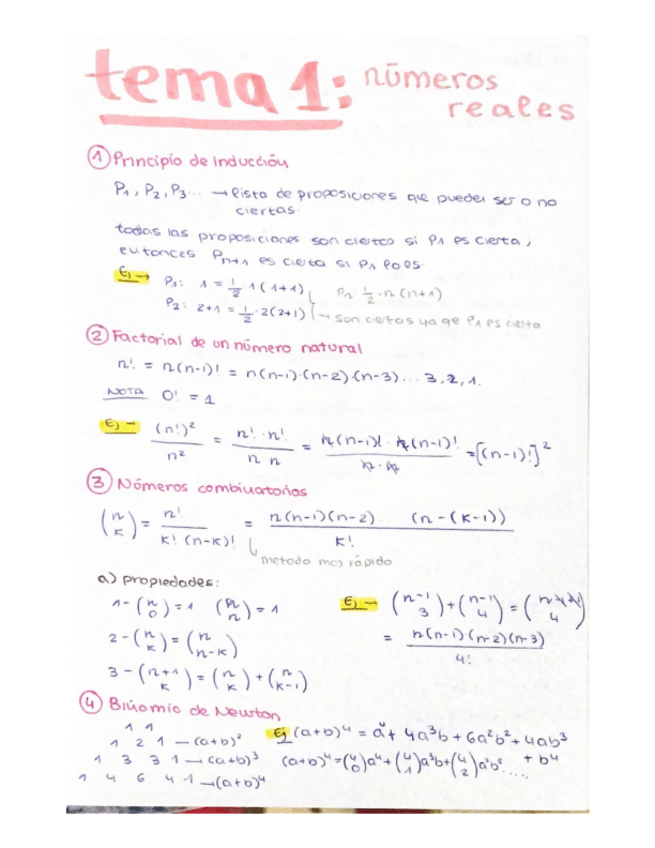 tema 1: números
reales
① Principio de Inducción
P1, P2, P3... → lista de proposiciones que pueden ser o no
ciertas.
todas las proposiciones son ciertas si P1 es cierta,
entonces Pn+1 es cierta si P1 lo es.
Ej → P1: 1 = 1/2 · 1(1+1) Pn 1/2 · n(n+1)
P2: 2+1 = 1/2 · 2(2+1) → son ciertas ya que P1 es cierta
② Factorial de un número natural
n! = n(n-1)! = n(n-1)·(n-2)·(n-3)... 3,2,1.
NOTA 0! = 1
Ej → (n!)²/n² = n!·n!/n n = n(n-1)!·n(n-1)!/n·n = [(n-1)!]²
③ Números combinatorios
(n k) = n!/k!(n-k)! = n(n-1)(n-2)... (n-(k-1))/k!
método más rápido
a) propiedades:
1- (n 0) = 1 (n n) = 1 Ej → (n-1 3) + (n-1 4) = (n 4)
2- (n k) = (n n-k) = n(n-1)(n-2)(n-3)/4!
3- (n+1 k) = (n k) + (n k-1)
④ Binomio de Newton
1 1 Ej (a+b)⁴ = a⁴ + 4a³b + 6a²b² + 4ab³
1 2 1 — (a+b)² + b⁴
1 3 3 1 → (a+b)³ (a+b)⁴ = (4 0)a⁴ + (4 1)a³b + (4 2)a²b² .....
1 4 6 4 1 → (a+b)⁴